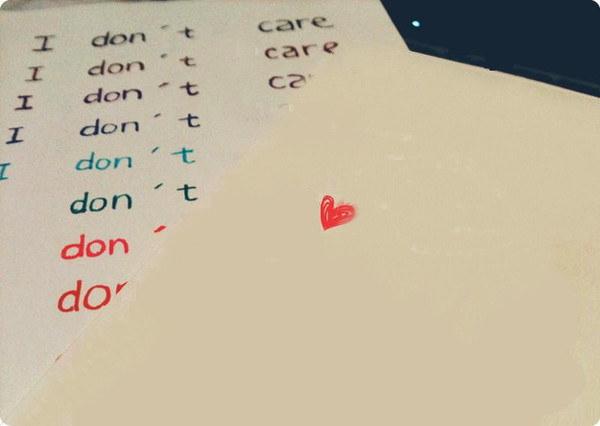 I don´t care
I don´t care
I don´t ca
I don´t
I don´t
don´t
don´
do